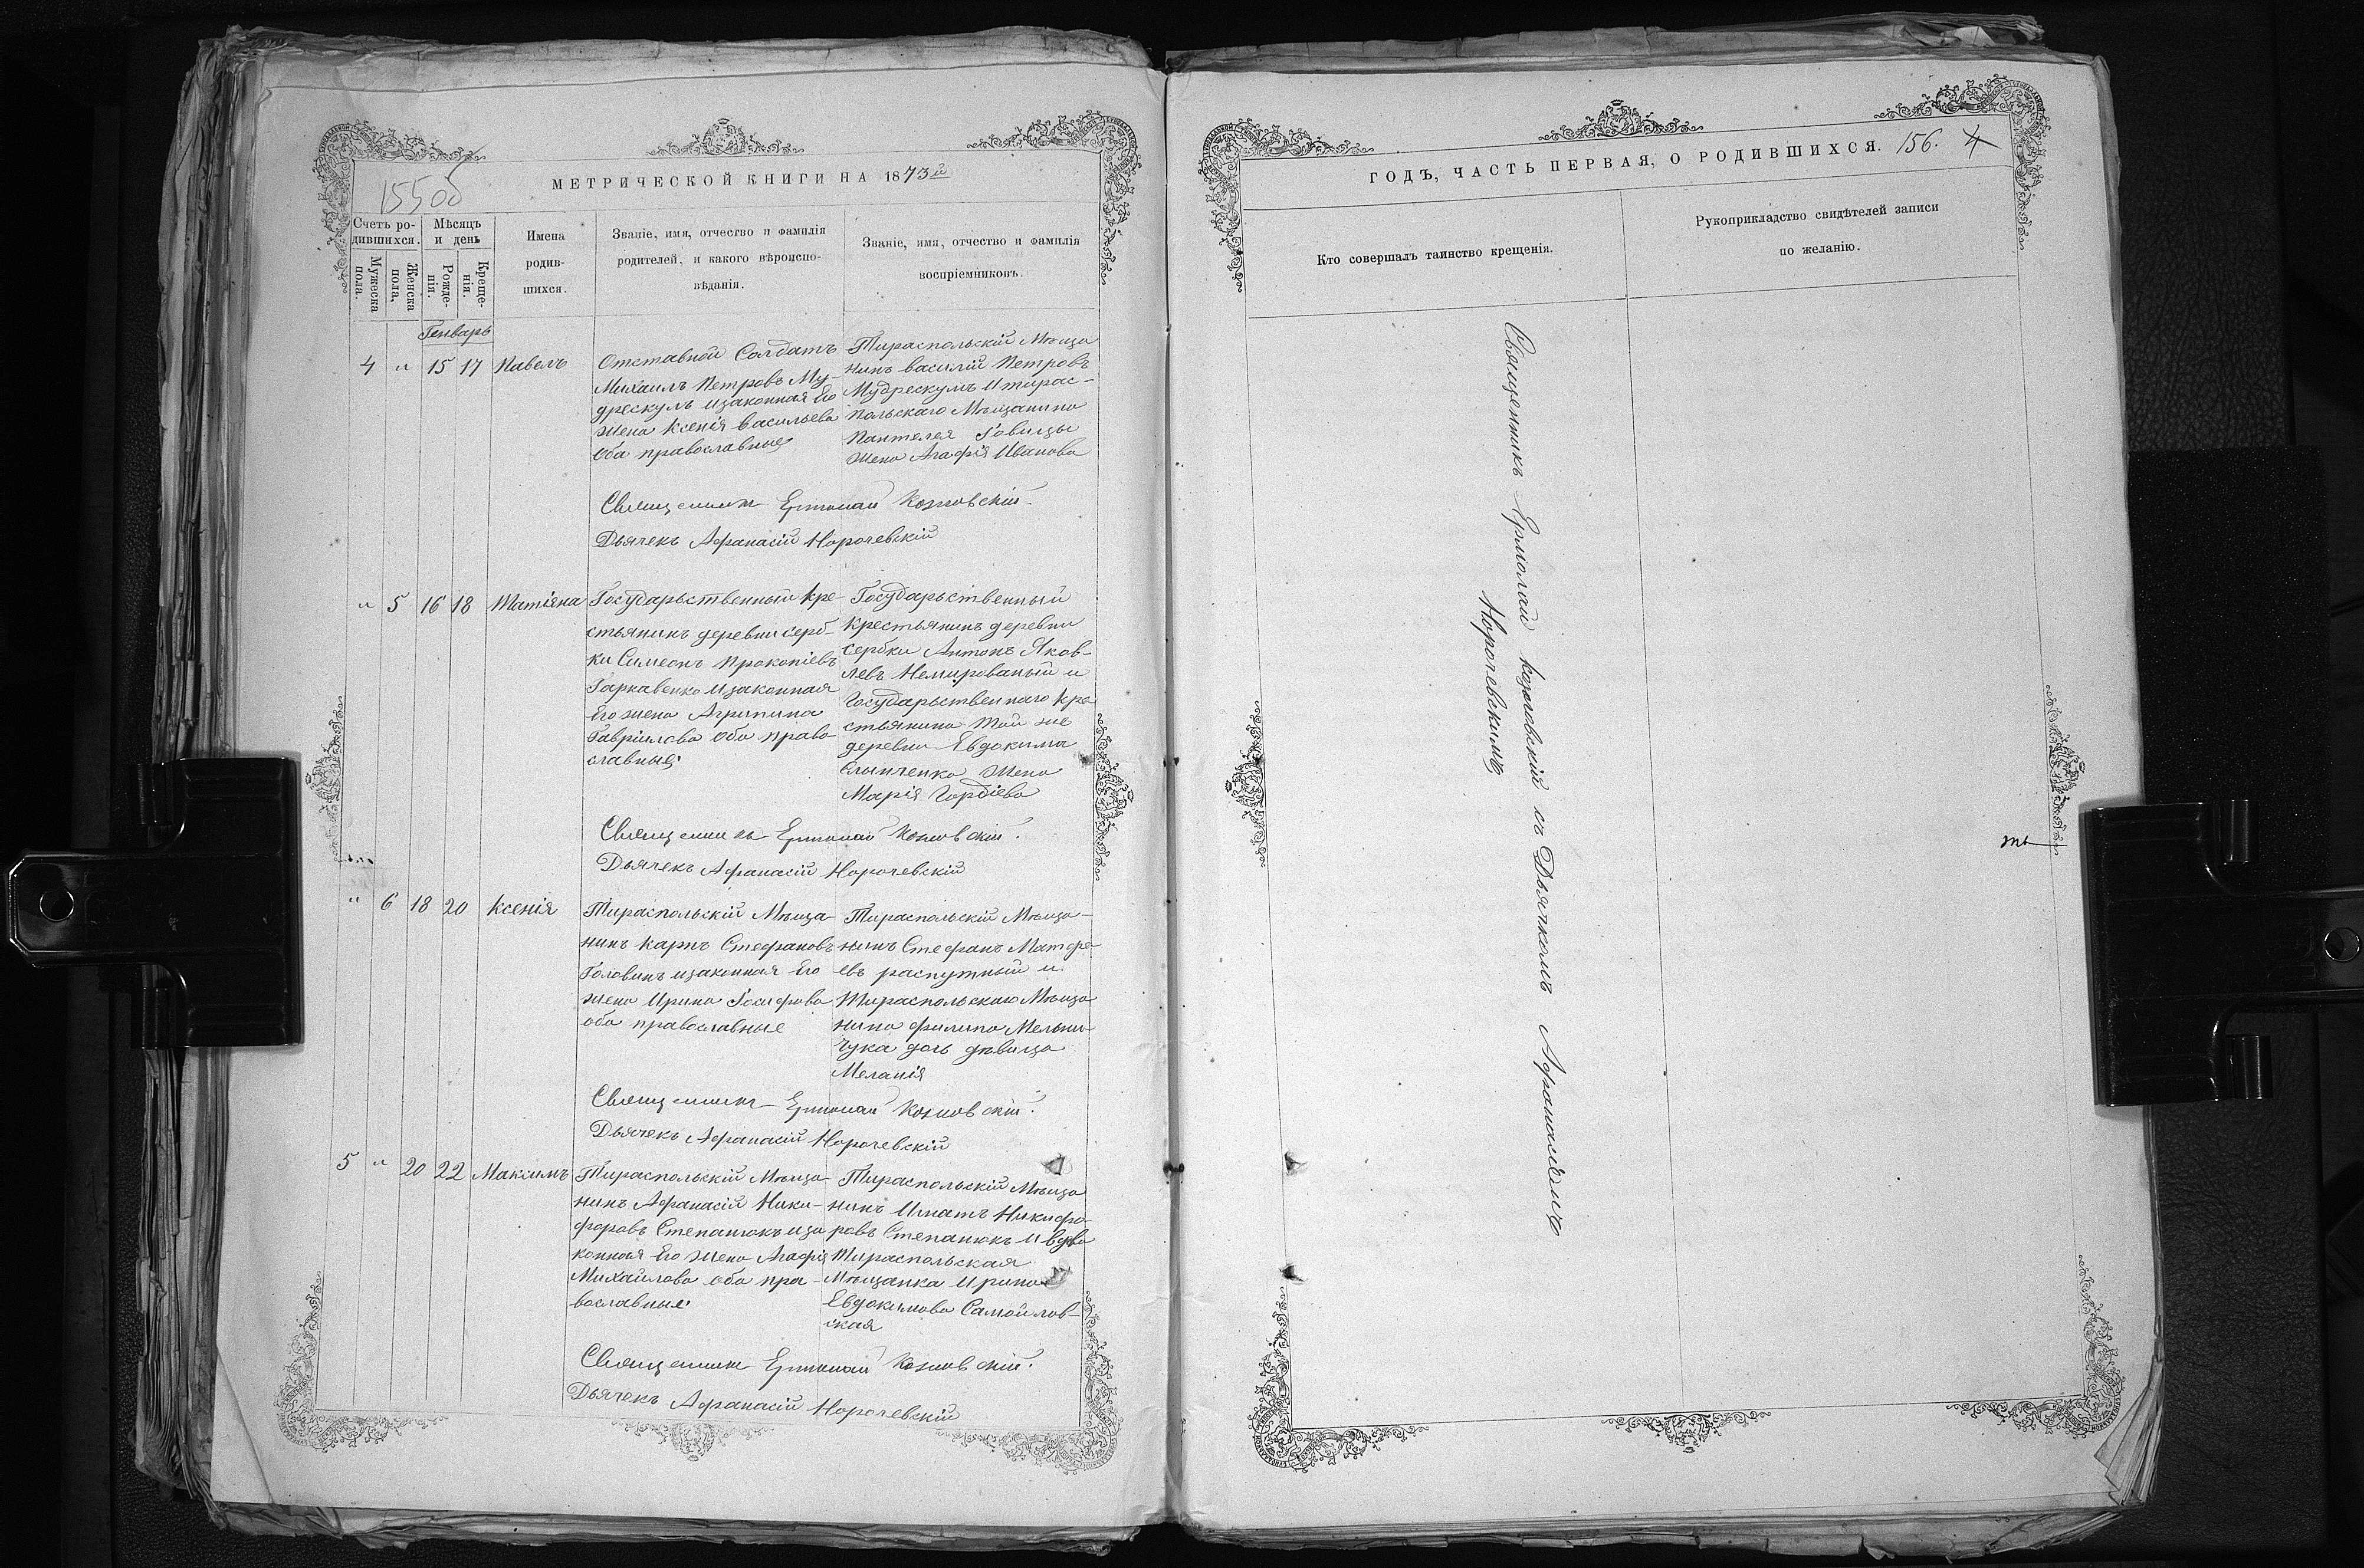 155об
МЕТРИЧЕСКОЙ КНИГИ НА 1873й
Счетъ ро-
дившихся.
Мужеска
пола.
Женска
пола.
Мѣсяцъ
и день
Рожде-
нія.
Креще-
нія.
Имена
родив-
шихся.
Званіе, имя, отчество и фамилія
родителей, и какого вѣроиспо-
вѣданія.
Званіе, имя, отчество и фамилія
воспріемниковъ.
Генварь
4 " 15 17 Павелъ
Отставной Солдатъ
Михаилъ Петровъ Му-
дрескулъ изаконная Его
жена Ксенія васильева
Оба православные
Тираспольскій Мѣща
нинъ василій Петровъ
Мудрескулъ И тирас-
польскаго Мѣщанина
Пантелея
жена Агафія Иванова
Священникъ Ермолай Козловскій
Дьячекъ Афанасій Норочевскій
" 5 16 18 Татіяна
Государьственный кре-
стьянинъ деревни серб-
ки Симеонъ Прокопіевъ
Гаркавенко изаконная
Его жена Агрипина
Гавріилова Оба право-
славные
Государьственный
крестьянинъ деревни
сербки Антонъ Яков-
левъ Немированый и
Государьственнаго кре
стьянина той же
деревни Евдокима
жена
Марія Гордіева
Священникъ Ермолай Козловскій.
Дьячекъ Афанасій Норочевскій
" 6 18 20 Ксенія
Тираспольскій Мѣща-
нинъ карпъ Стефановъ
Головинъ изаконная Его
жена Ирина Іосифова
оба православные
Тираспольскій Мѣща-
нинъ Стефанъ Матфе-
евъ распутный и
Тираспольскаго Мѣща
нина филипа Мельни-
чука дочь дѣвица
Меланія
Священникъ Ермолай Козловскій.
Дьячекъ Афанасій Норочевскій
5 " 20 22 Максимъ
Тираспольскій Мѣща-
нинъ Афанасій Ники-
форовъ Степанюкъ иза
конная Его жена Агафія
Михайлова оба пра-
вославные
Тираспольскій Мѣща
нинъ Игнатъ Никифо-
ровъ Степанюкъ И вдова
Тираспольская
Мѣщанка Ирина
Евдокимова Самойлов-
ская
Священникъ Ермолай Козловскій.
Дьячекъ Афанасій Норочевскій
ГОДЪ, ЧАСТЬ ПЕРВАЯ, О РОДИВШИХСЯ. 156. 4
Кто совершалъ таинство крещенія.
Рукоприкладство свидѣтелей записи
по желанію.
Священникъ Ермолай козловскій съ Дьячкомъ Афанасіемъ
Норочевскимъ